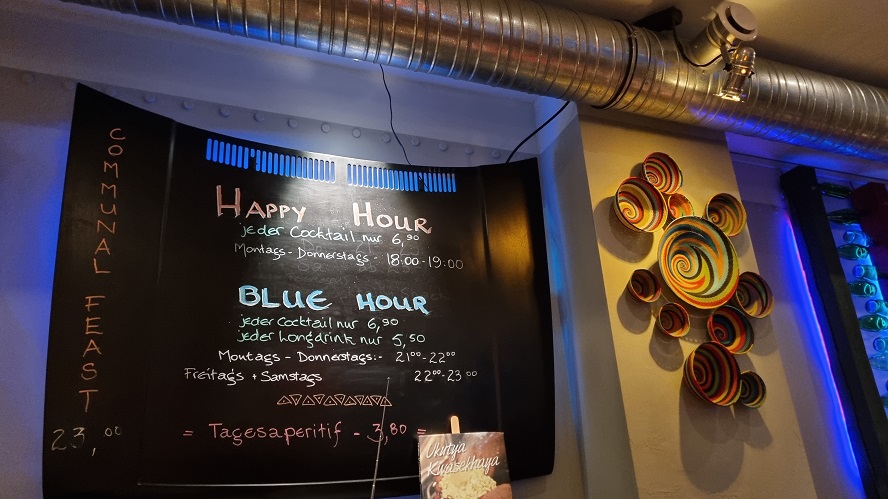 COMMUNAL FEAST
23,00
HAPPY HOUR
jeder Cocktail nur 6,90
Montags - Donnerstags - 18:00-19:00
BLUE HOUR
jeder Cocktail nur 6,90
jeder Longdrink nur 5,50
Montags - Donnerstags:- 21⁰⁰-22⁰⁰
Freitags + Samstags 22⁰⁰-23⁰⁰
= Tagesaperitif - 3,80 =
Ukutya
Kwasekhaya